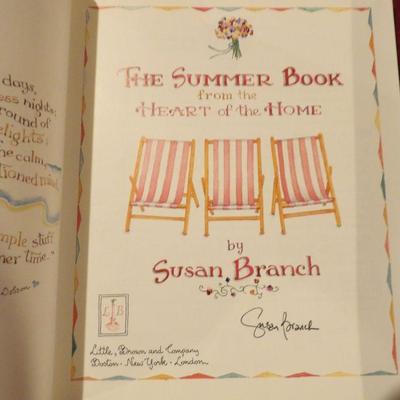 days,
ess nights.
round of
elights:
he calm,
tioned mind
mple stuff
ner time..."
THE SUMMER BOOK
from the
HEART of the HOME
by
SUSAN BRANCH
L B
Little, Brown and Company
Boston · New York · London
Susan Branch